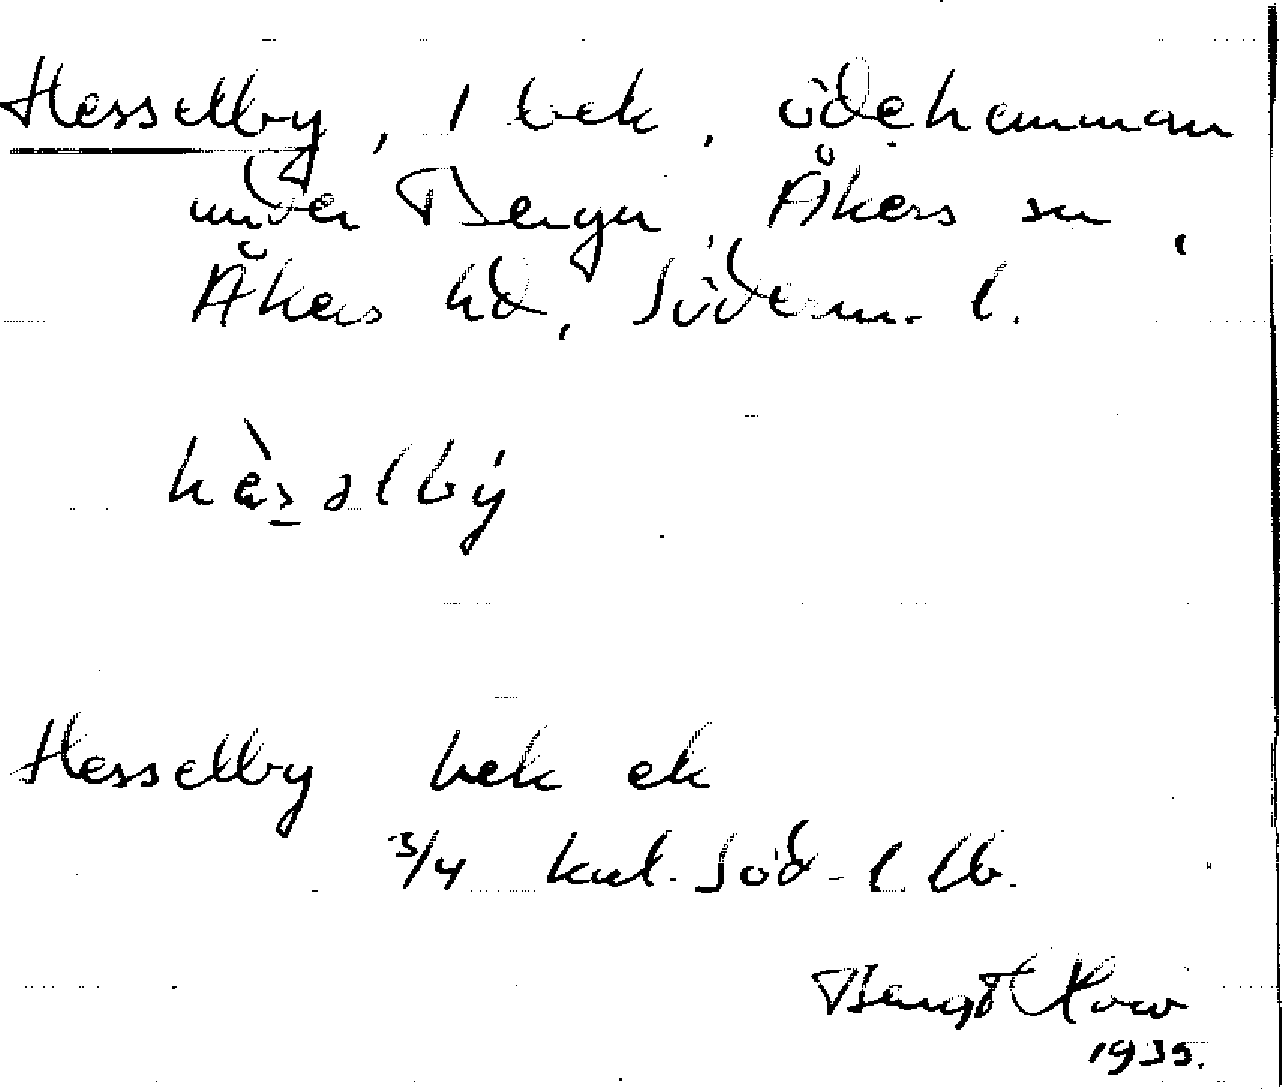 Hesselby, 1 bek, ödehemman
under Berga, Åkers sn,
Åkers hd, Söderm. l.
hès̲əlbý
Hesselby bek ek
3/4 kul. Söd. l. lb.
Bengt
1935.